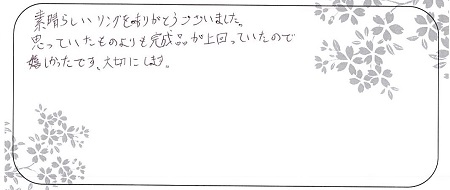 素晴らしいリングを有りがとうございました。
思っていたものよりも完成品が上回っていたので
嬉しかったです、大切にします。